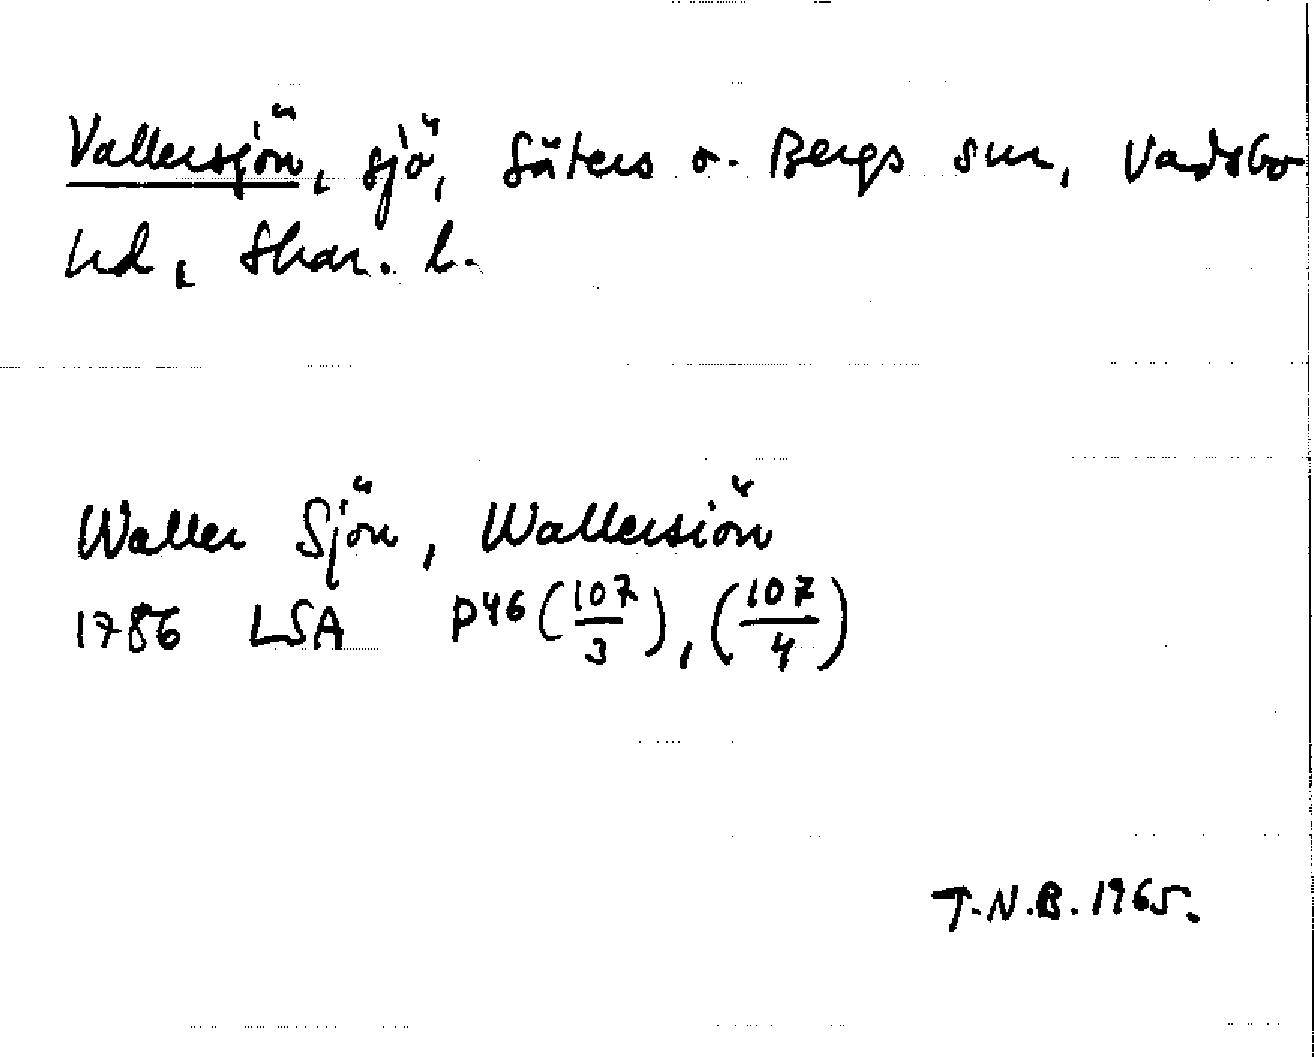 Vallersjön, sjö, Säters o. Bergs snr, Vadsbo
hd, Skar. l.
Waller Sjön, Wallersiön
1786 LSA P46 (107/3), (107/4)
T.N.B. 1965.